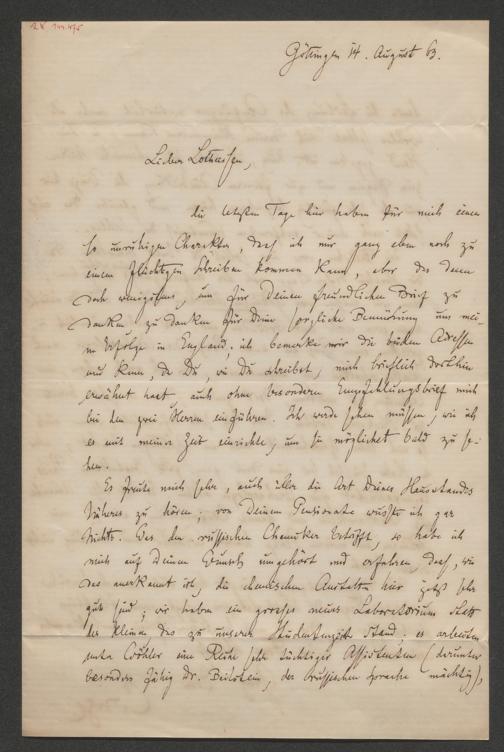 Göttingen 14. August 63.
Lieber Lotheissen,
die letzten Tage hier haben für mich einen
so unruhigen Charakter, daß ich nur ganz eben noch zu
einem flüchtigen Schreiben kommen kann, aber das denn
doch wenigstens, um für Deinen freundlichen Brief zu
danken, zu danken für Deine sorgliche Bemühung um mei-
ne Erfolge in England; ich bemerke mir die beiden Adressen
und kann, da Du, wie Du schreibst, mich brieflich dorthin
erwähnt hast, auch ohne besondern Empfehlungsbrief mich
bei den zwei Herren einführen. Ich werde sehen müssen, wie ich
es mit meiner Zeit einrichte, um sie möglichst bald zu se-
hen.
Es freute mich sehr, auch über die Art Deines Hausstandes
Näheres zu hören; von Deinem Pensionate wußte ich gar
Nichts. Was den russischen Chemiker betrifft, so habe ich
mich auf Deinen Wunsch umgehört und erfahren, daß, wie
das anerkannt ist, die chemischen Anstalten hier jetzt sehr
gut sind; wir haben ein großes neues Laboratorium statt
des kleinen das zu unserer Studentenzeit stand; es arbeiten
unter Wöhler eine Reihe sehr tüchtiger Assistenten (darunter
besonders fähig Dr. Beilstein, der russischen Sprache mächtig),